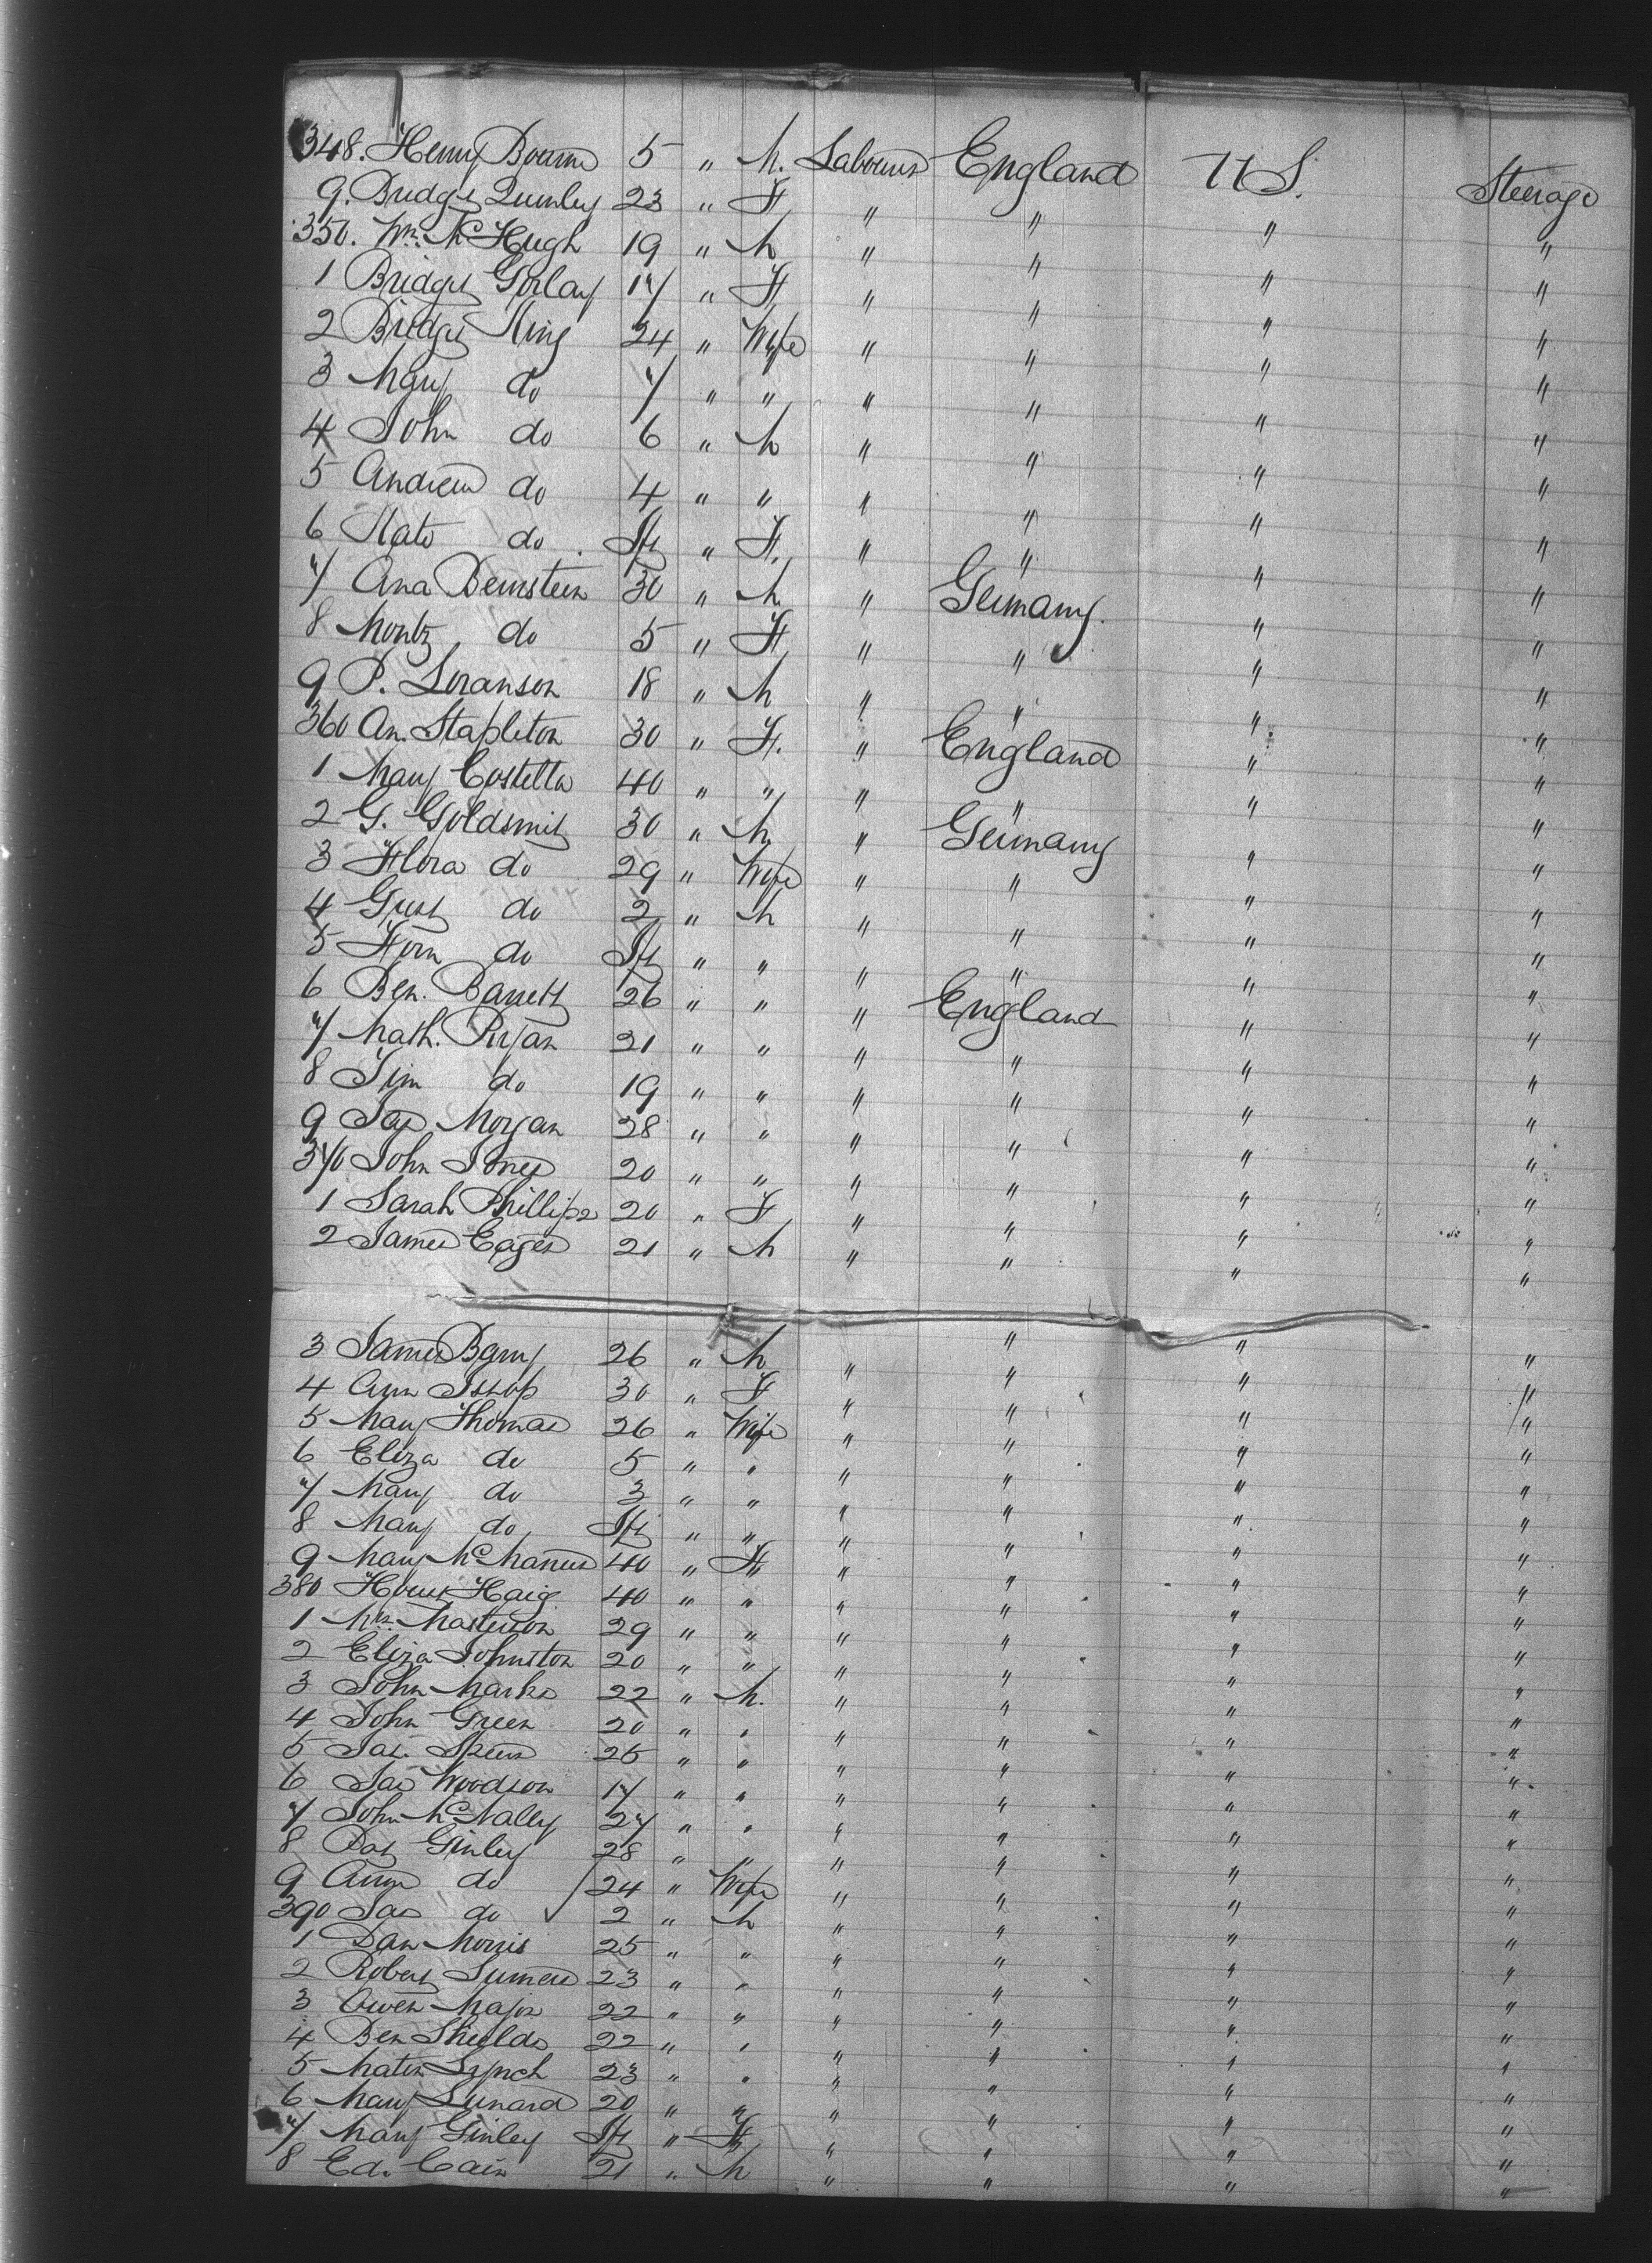 348. Henry Bourne 5 " M. Labourer England U S. Steerage
9. Bridget Quinley 23 " F " " " "
350. Wm. McHugh 19 " M " " " "
1 Bridget Gorlay 17 " F " " " "
2 Bridget King 24 " Wife " " " "
3 Mary do 7 " " " " " "
4 John do 6 " M " " " "
5 Andrew do 4 " " " " " "
6 Kate do. Inft " F. " " " "
7 Ana Bernstein 30 " M " Germany. " "
8 Moritz do 5 " F " " " "
9 P. Soranson 18 " M " " " "
360 An. Stapleton 30 " F. " England " "
1 Mary Costello 40 " " " " " "
2 G. Goldsmit 30 " M. " Germany " "
3 Flora do 29 " Wife " " " "
4 Gust do 2 " M " " " "
5 do Inft " " " " " "
6 Ben. Barrett 26 " " " England " "
7 Math. Ryan 21 " " " " " "
8 Tim do 19 " " " " " "
9 Jas Morgan 28 " " " " " "
370 John Jones 20 " " " " " "
1 Sarah Phillips 20 " F " " " "
2 James Eager 21 " M " " " "
3 James Barry 26 " M " " " "
4 Ann 30 " F " " " "
5 Mary Thomas 26 " Wife " " " "
6 Eliza do 5 " " " " " "
7 Mary do 3 " " " " " "
8 Mary do Inft " " " " " "
9 Mary McManus 40 " F " " " "
380 Haig. 40 " " " " " "
1 Mrs. Masterson 29 " " " " " "
2 Eliza Johnston 20 " " " " " "
3 John Marks 22 " M. " " " "
4 John Green 20 " " " " " "
5 Jas. Speers 25 " " " " " "
6 Jas Woodson 17 " " " " " "
7 John McNally 27 " " " " " "
8 Pat Ginley 28 " " " " " "
9 Anne do 24 " Wife " " " "
390 Jas do 2 " M " " " "
1 Dan Morris 25 " " " " " "
2 Robert Sumers 23 " " " " " "
3 Owen Major 22 " " " " " "
4 Ben Shields 22 " " " " " "
5 Lynch 23 " " " " " "
6 Mary Lunard 20 " " " " " "
7 Mary Ginley Inft " F " " " "
8 Ed. Cain 21 " M " " " "